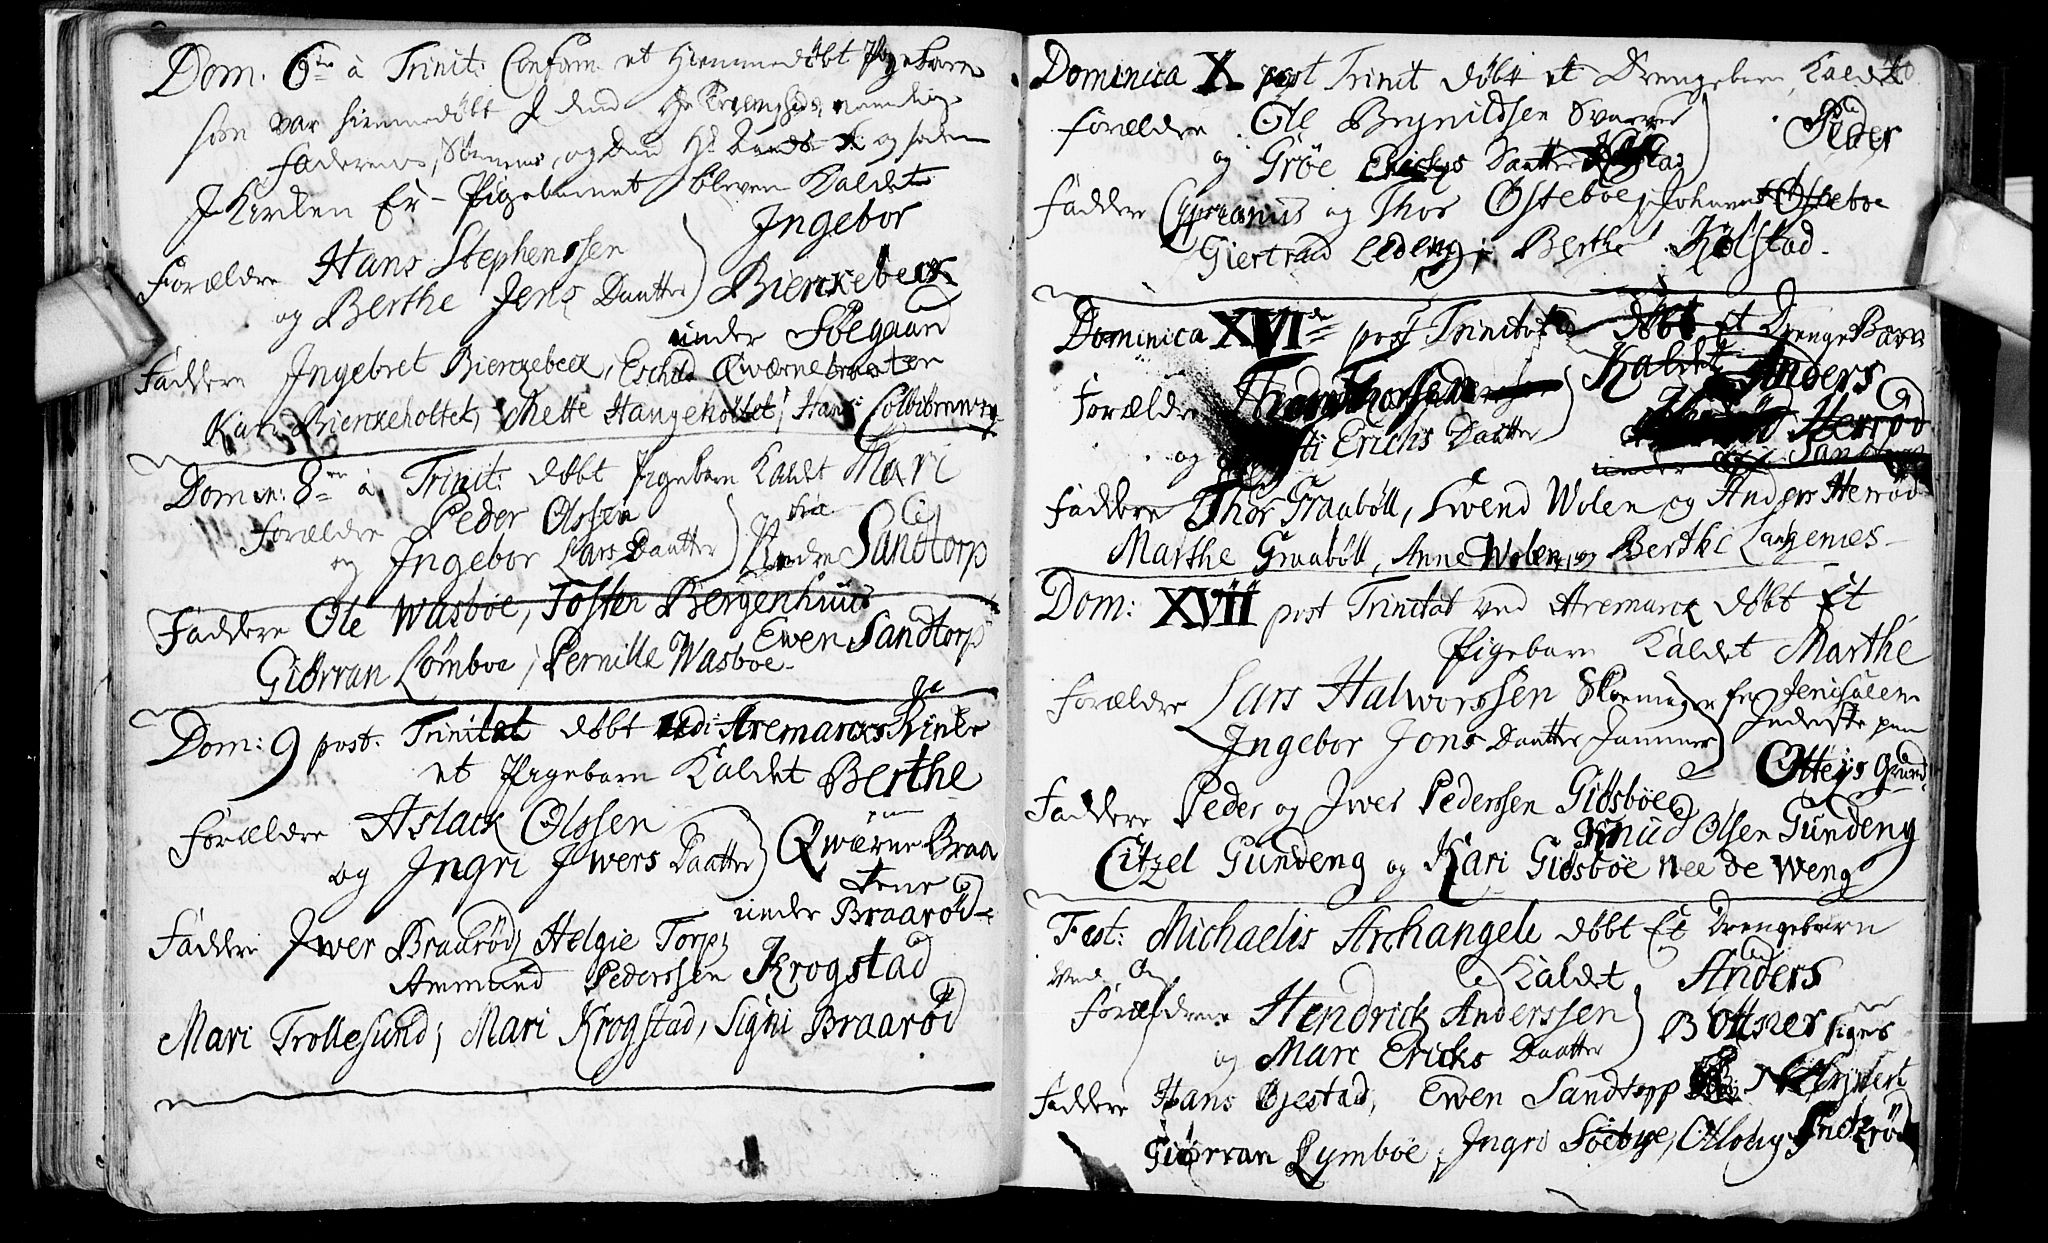 Dom. 6te à Trinit: Confirm. et Hiemmedøbt Pigebarn
som var hiemmedøbt
Faderens, Sønnens, og Den Hl: Aands og siden
J Kirken Er Pigebarnet bleven Kaldet
Ingebor
Forældre Hans Stephenssen
og Berthe Jens Daatter Bierckebeck
under Søegaard
Faddere Ingebret Bierckebeck, Eschild Qwærnebraaten
Kari Bierckeholtet, Mette Hangeholtet, Hans Colbiørnsrø
Domin: 8ve à Trinit: døbt Pigebarn Kaldet Mari
Forældre Peder Olssen fra
og Ingebor Lars Daatter Nedre Sandtorp
Faddere Ole Wasbøe, Tosten Bergenhuus
Ewen Sandtorp
Giørran Lømboe, Pernille Wasboe
Dom: 9 post. Trinitat døbt udi Aremarcks Kircke
et Pigebarn Kaldet Berthe
Forældre Aslack Olssen
og Ingri Iwers Daatter Qwærne Braa
tene
under Braarød
Faddere Iwer Braarød, Helgie Torp,
Ammund Pederssen Krogstad
Mari Trollesund, Mari Krogstad, Signi Braarød
Dominica X post Trinit døbt et Drengebarn Kaldet
Forældre Ole Brynildsen Svarver Peder
og Grøe Erichs Daatter
Faddere Cyprianus og Thor Østeboe, Johannes Østeboe
Giertrud Ledeng, Berthe Kølstad
Dominica XVIde post Trinitatis døbt Et DrengeBarn
Kaldet Anders
Forældre Thorssen
Herrød
og Erichs Daatter
under Sandtorp
Faddere Thor Graabøll, Swend Wolen og Anders Herrød
Marthe Graabøll, Anne Wolen, og Berthe Langenes
Dom: XVII post Trinitat ved Aremarck døbt Et
Pigebarn Kaldet Marthe
Forældre Lars Halworssen Skomager fra Jerusalem
Inderste paa
Ingebor Jons Daatter
Otteys Grund
Faddere Peder og Iwer Pederssen Giøsbøe
Knud Olsen Gundeng
Citzel Gundeng og Kari Giøsbøe nee de Weng
Fest: Michaelis Archangeli døbt Et Drengebarn
Ved Kaldet Anders
Forældrene Hendrick Anderssen Bøttner
og Mari Erichs Daatter
Faddere Hans Bjestad, Ewen Sandtorp
Giørran Lymboe, Ingri Søebye,